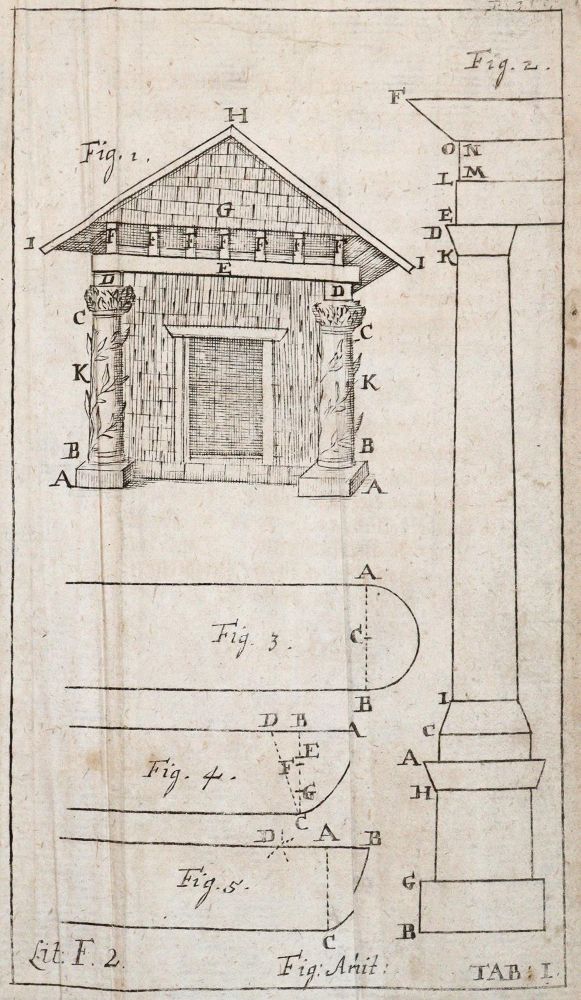 Fig. 2.
F
H
Fig. 1.
O N
L M
G
E
I
F F F F F F F
D
E
I
K
D D
C C
K K
B B
A A
A
Fig. 3.
C
B
I
D B A
C
E
F
A
Fig. 4.
H
G
C
D A B
Fig. 5.
G
C
B
Lit: F. 2.
TAB: I.